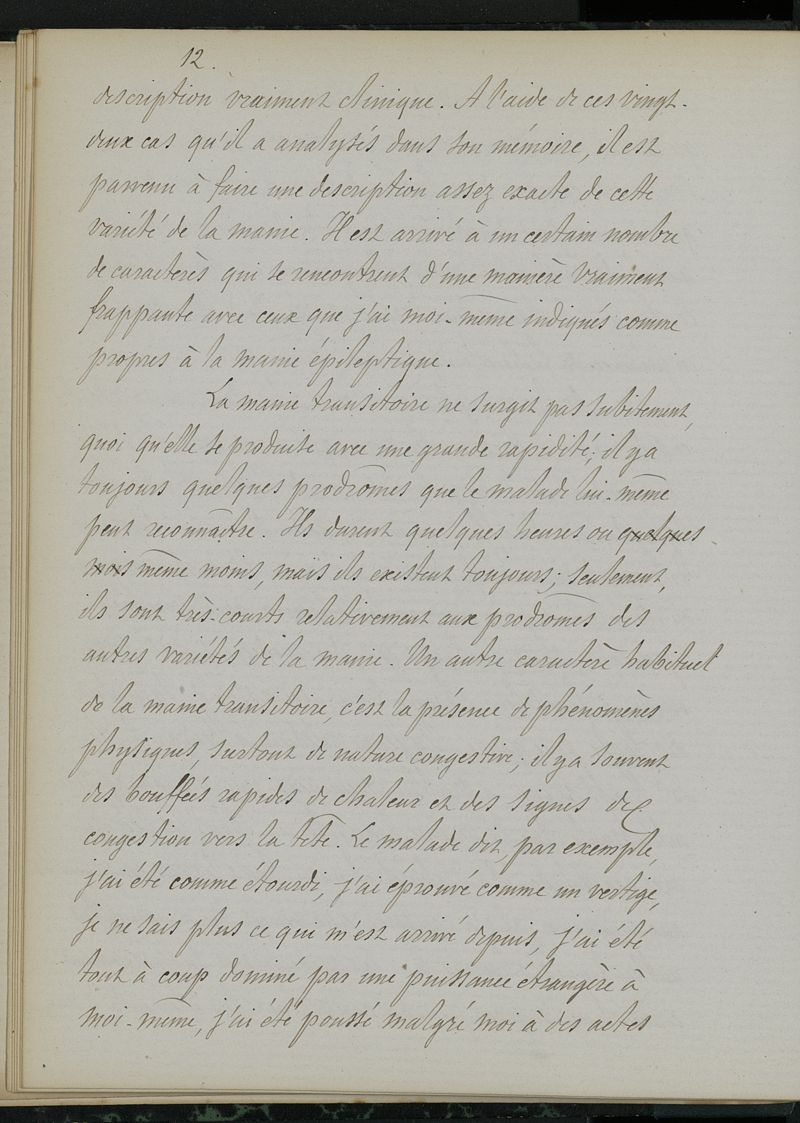 12.
description vraiment clinique. A l'aide de ces vingt-
deux cas qu'il a analysés dans son mémoire, il est
parvenu à faire une description assez exacte de cette
variété de la manie. Il est arrivé à un certain nombre
de caractères qui se rencontrent d'une manière vraiment
frappante avec ceux que j'ai moi-même indiqués comme
propres à la manie épileptique.
La manie transitoire ne surgit pas subitement,
quoi qu'elle se produise avec une grande rapidité; il y a
toujours quelques prodrômes que le malade lui-même
peut reconnaître. Ils durent quelques heures ou quelques
mois même moins, mais ils existent toujours; seulement,
ils sont très-courts relativement aux prodrômes des
autres variétés de la manie. Un autre caractère habituel
de la manie transitoire, c'est la présence de phénomènes
physiques, surtout de nature congestive; il y a souvent
des bouffées rapides de chaleur et des signes de
congestion vers la tête. Le malade dit, par exemple,
j'ai été comme étourdi, j'ai éprouvé comme un vertige,
je ne sais plus ce qui m'est arrivé depuis, j'ai été
tout à coup dominé par une puissance étrangère à
moi-même, j'ai été poussé malgré moi à des actes